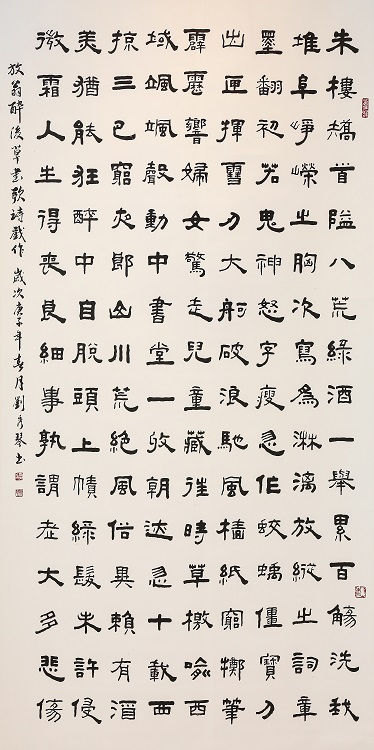 朱樓矯首隘八荒綠酒一舉累百觴洗我
堆阜崢嶸之胸次寫為淋漓放縱之詞章
墨翻初若鬼神怒字瘦忽作蛟螭僵寶刀
出匣揮雪刃大舸破浪馳風檣紙窮擲筆
霹靂響婦女驚走兒童藏往時草檄喻西
域颯颯聲動中書堂一收朝迹忽十載西
掠三巴窮夜郎山川荒絕風俗異賴有酒
美猶能狂醉中自脫頭上幘綠髮未許侵
微霜人生得喪良細事孰謂老大多悲傷
放翁醉後草書歌詩戲作 歲次庚子年春月劉秀琴書